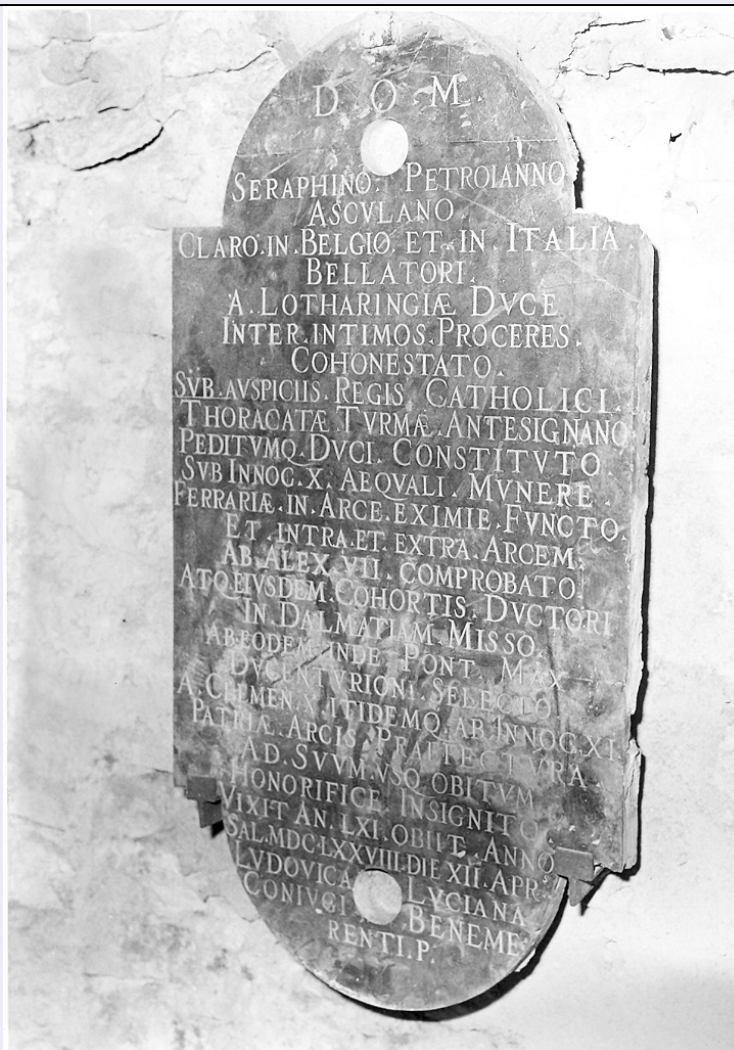 D. O. M.
SERAPHINO. PETROIANNO
ASCVLANO.
CLARO. IN. BELGIO. ET. IN. ITALIA.
BELLATORI.
A. LOTHARINGIÆ DVCE
INTER. INTIMOS. PROCERES.
COHONESTATO.
SVB. AVSPICIIS. REGIS. CATHOLICI.
THORACATÆ TVRMÆ. ANTESIGNANO
PEDITVMQ. DVCI. CONSTITVTO.
SVB INNOC. X. AEQVALI. MVNERE.
FERRARIÆ. IN. ARCE. EXIMIE. FVNCTO.
ET. INTRA. ET. EXTRA. ARCEM.
AB. ALEX. VII. COMPROBATO.
ATQ. EIVSDEM. COHORTIS. DVCTORI
IN. DALMATIAM. MISSO.
AB. EODEM. INDE. PONT. MAX
DVCENTVRIONI. SELECTO.
A. CLEMEN. X. ITIDEMQ. AB. INNOC. XI.
PATRIÆ. ARCIS. PRAEFECTVRA.
AD. SVVM. VSQ. OBITVM
HONORIFICE INSIGNITO.
VIXIT AN. LXI. OBIIT. ANNO
SAL. MDCLXXVIII. DIE XII. APR.
LVDOVICA LVCIANA
CONIVGI. BENEME
RENTI. P.